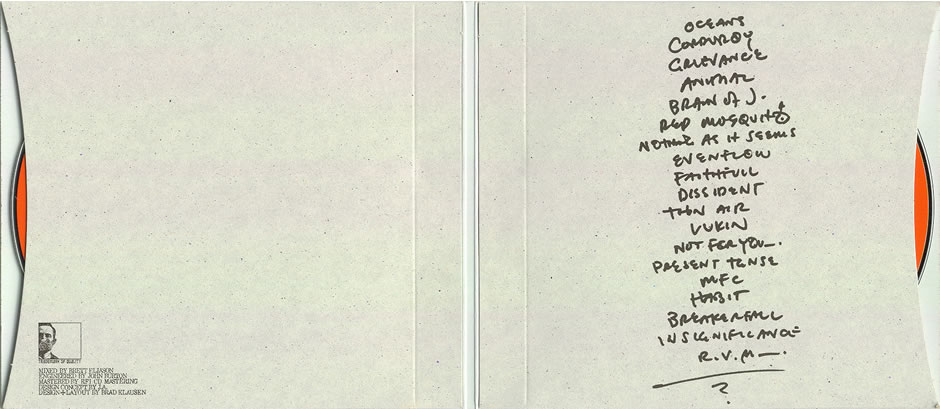 TRADEMARK OF QUALITY
MIXED BY BRETT ELIASON
ENGINEERED BY JOHN BURTON
MASTERED BY RFI CD MASTERING
DESIGN CONCEPT BY J.A.
DESIGN+LAYOUT BY BRAD KLAUSEN
OCEANS
CORDUROY
GRIEVANCE
ANIMAL
BRAIN OF J.
RED MOSQUITO
NOTHING AS IT SEEMS
EVENFLOW
FAITHFULL
DISSIDENT
THIN AIR
LUKIN
NOT FOR YOU—.
PRESENT TENSE
MFC
HABIT
BREAKERFALL
INSIGNIFICANCE
R.V.M—.
?